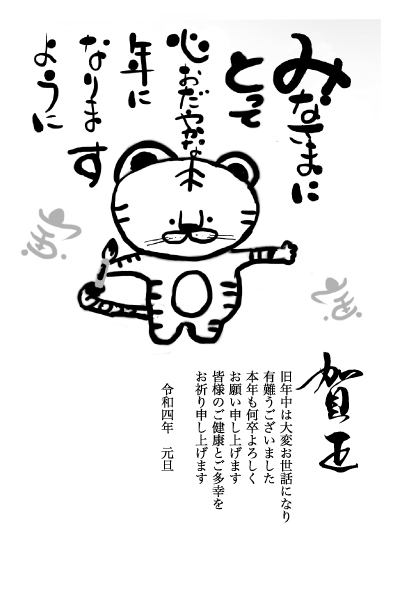 みなさまに
とって
心おだやかな
年に
なります
ように
賀正
旧年中は大変お世話になり
有難うございました
本年も何卒よろしく
お願い申し上げます
皆様のご健康とご多幸を
お祈り申し上げます
令和四年　元旦